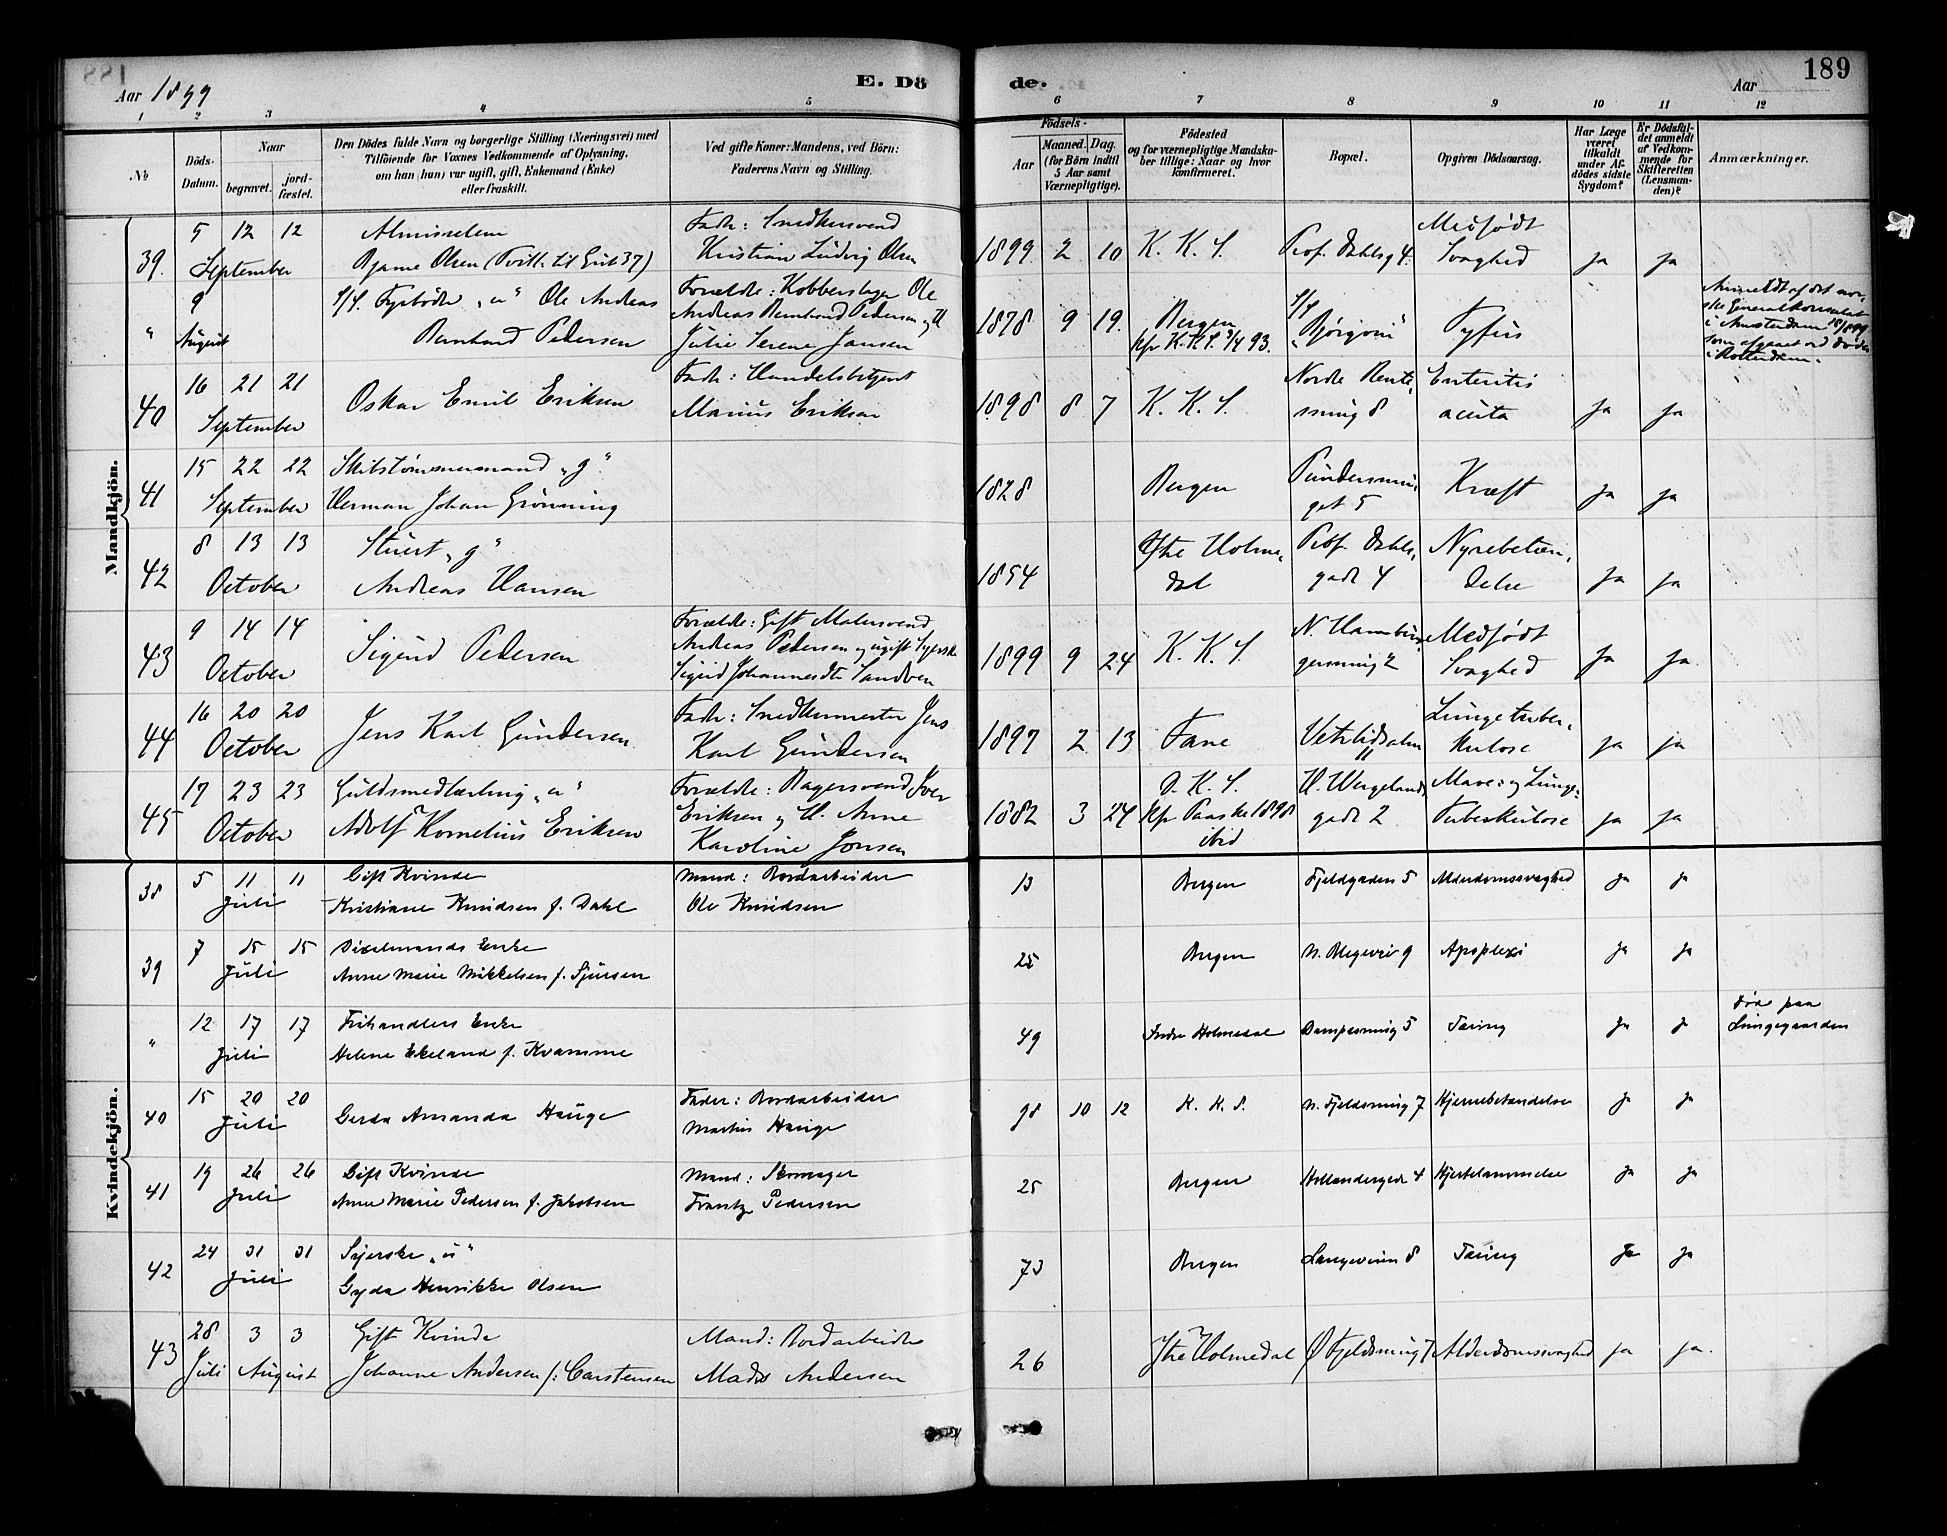 Aar 1899
E. Dö
de.
Aar
189
1 2 3 4 5 6 7 8 9 10 11 12
№
Döds-
Datum.
Naar
begravet.
jord-
fæstet.
Den Dödes fulde Navn og borgerlige Stilling (Næringsvei) med
Tilföiende for Voxnes Vedkommende af Oplysning,
om han (hun) var ugift, gift, Enkemand (Enke)
eller fraskilt.
Ved gifte Koner: Mandens, ved Börn:
Faderens Navn og Stilling.
Födsels-
Aar
Maaned. Dag.
(for Börn indtil
5 Aar samt
Værnepligtige).
Födested
og for værnepligtige Mandska-
ber tillige: Naar og hvor
konfirmeret.
Bopæl.
Opgiven Dödsaarsag.
Har Læge
været
tilkaldt
under Af-
dödes sidste
Sygdom?
Er Dödsfal-
det anmeldt
af Vedkom-
mende for
Skifteretten
(Lensman-
den)?
Anmærkninger.
Mandkjön.
39. 5 12 12
September
Almisselem
Bjarne Olsen (Tvill. til Gut 37)
Fader: Snedkersvend
Kristian Ludvig Olsen
1899 2 10 K. K. S. Prof. Dahlsg 4. Medfødt
Svaghed ja ja
" 9
August
S/S. Fyrbøder "u" Ole Andreas
Bernhard Pedersen
Forældre: Kobberslager Ole
Andreas Bernhard Pedersen og H
Julie Serene Jansen
1878 9 19. Bergen
kfr K.K.S. 9/4 93.
S/S
"Bjørgvin" Tyfus
Anmeldt af det nor-
ske Generalkonsulat
i Amsterdam 18/8 99
som afgaaet ved døden
i Rotterdam.
40 16 21 21
September
Oskar Emil Eriksen
Fader: Handelsbetjent
Marius Eriksen
1898 8 7 K. K. S. Nordre
smug 8
Enteritis
acuta ja ja
41 15 22 22
September
Skibstømmermand "g".
Herman Johan Grönning
1828 Bergen
get 5
Kræft ja ja
42 8 13 13
October
Stuert "g"
Andreas Hansen
1854 Ytre Holme-
dal
Prof. Dahls-
gade 4
Nyrebetæn-
delse ja ja
43 9 14 14
October
Sigurd Pedersen
Forældre: Gift Malersvend
Andreas Pedersen og ugift Syerske
Sigrid Johannesdtr Sandven
1899 9 24 K. K. S.
Medfødt
Svaghed ja ja
44 16 20 20
October
Jens Karl Gundersen
Fader: Snedkermester Jens
Karl Gundersen
1897 2 13 Fane Vetrlidsalm
11
Lungetuber-
kulose ja ja
45 17 23 23
October
Guldsmedlærling "u"
Adolf Kornelius Eriksen
Forældre: Bagersvend Iver
Eriksen og H. Anne
Karoline Jonsen
1882 3 24 D. K. S.
Kfr Paaske 1898
ibid
H. Wergelands
gade 2
Mave- og Lunge-
Tuberkulose ja ja
Kvindekjön.
38 5 11 11
Juli
Gift Kvinde
Kristiane Knudsen f. Dahl
Mand: Bordarbeider
Ole Knudsen
13 Bergen Fjeldgaden 5 Alderdomssvaghed ja ja
39 7 15 15
Juli
Enke
Anne Marie Mikkelsen f. Sjursen
25 Bergen N. Blegevei 9 Apoplexi ja ja
" 12 17 17
Juli
Frihandlers Enke
Helene Ekeland f. Kvamme
49 Indre Holmedal Dampesmug 5 Tæring ja ja
Død paa
Lungegaarden
40 15 20 20
Juli
Gerda Amanda Hauge
Fader: Bordarbeider
Martin Hauge
98 10 12 K. K. S. N. Fjeldsmug 7 Hjernebetændelse ja ja
41 19 26 26
Juli
Gift Kvinde
Anne Marie Pedersen f. Jakobsen
Mand: Skomager
Frantz Pedersen
25 Bergen Hollendergade 4 Hjertelammelse ja ja
42 24 31 31
Juli
Syerske "u"
Gyda Henrikke Olsen
73 Bergen Langeveien 8 Tæring Ja ja
43 28 3 3
Juli August
Gift Kvinde
Johanne Andersen f: Carstensen
Mand: Bordarbeider
Mads Andersen
26 Ytre Holmedal Ø Fjeldsmug 7 Alderdomssvaghed ja ja.